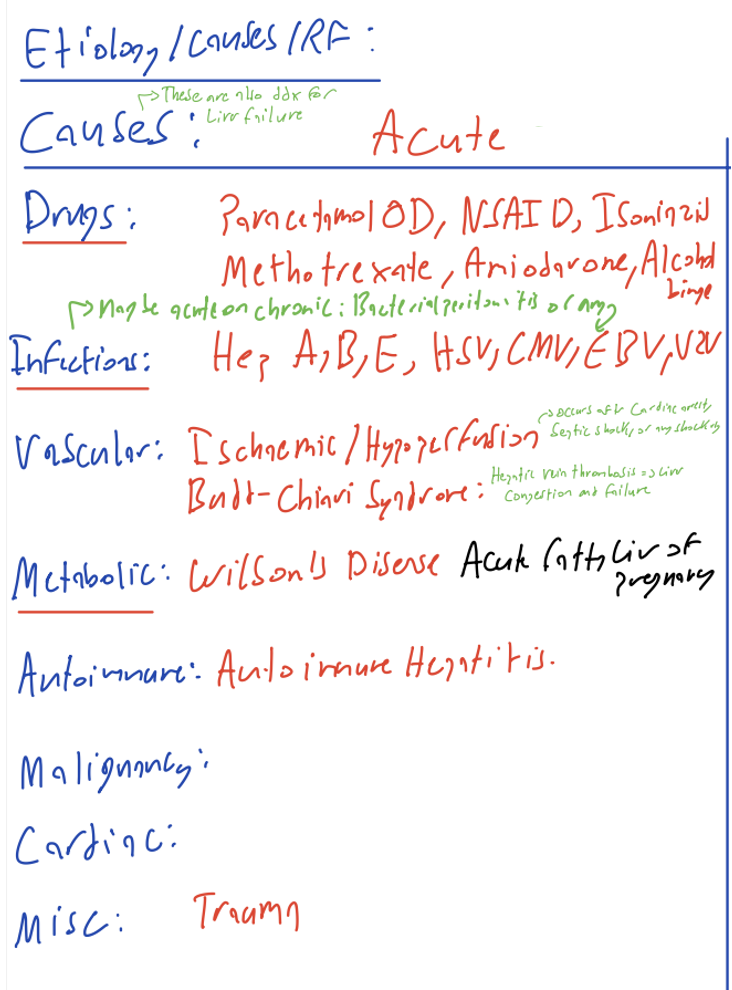 Etiology/Causes/RF:
→These are also ddx for
Liver failure
Causes:
Acute
Drugs:
Paracetamol OD, NSAID, Isoniazid
Methotrexate, Amiodarone, Alcohol
binge
→Maybe acute on chronic: Bacterial peritonitis or any
Infections:
Hep A, B, E, HSV, CMV, EBV, VZV
→occurs after Cardiac arrest,
Septic shock, or any shock
Vascular: Ischaemic/Hypoperfusion
Budd-Chiari Syndrome:
Hepatic vein thrombosis => Liver
Congestion and failure
Metabolic: Wilson's Disease Acute fatty liver of
pregnancy
Autoimmune: Autoimmune Hepatitis.
Malignancy:
Cardiac:
Misc: Trauma